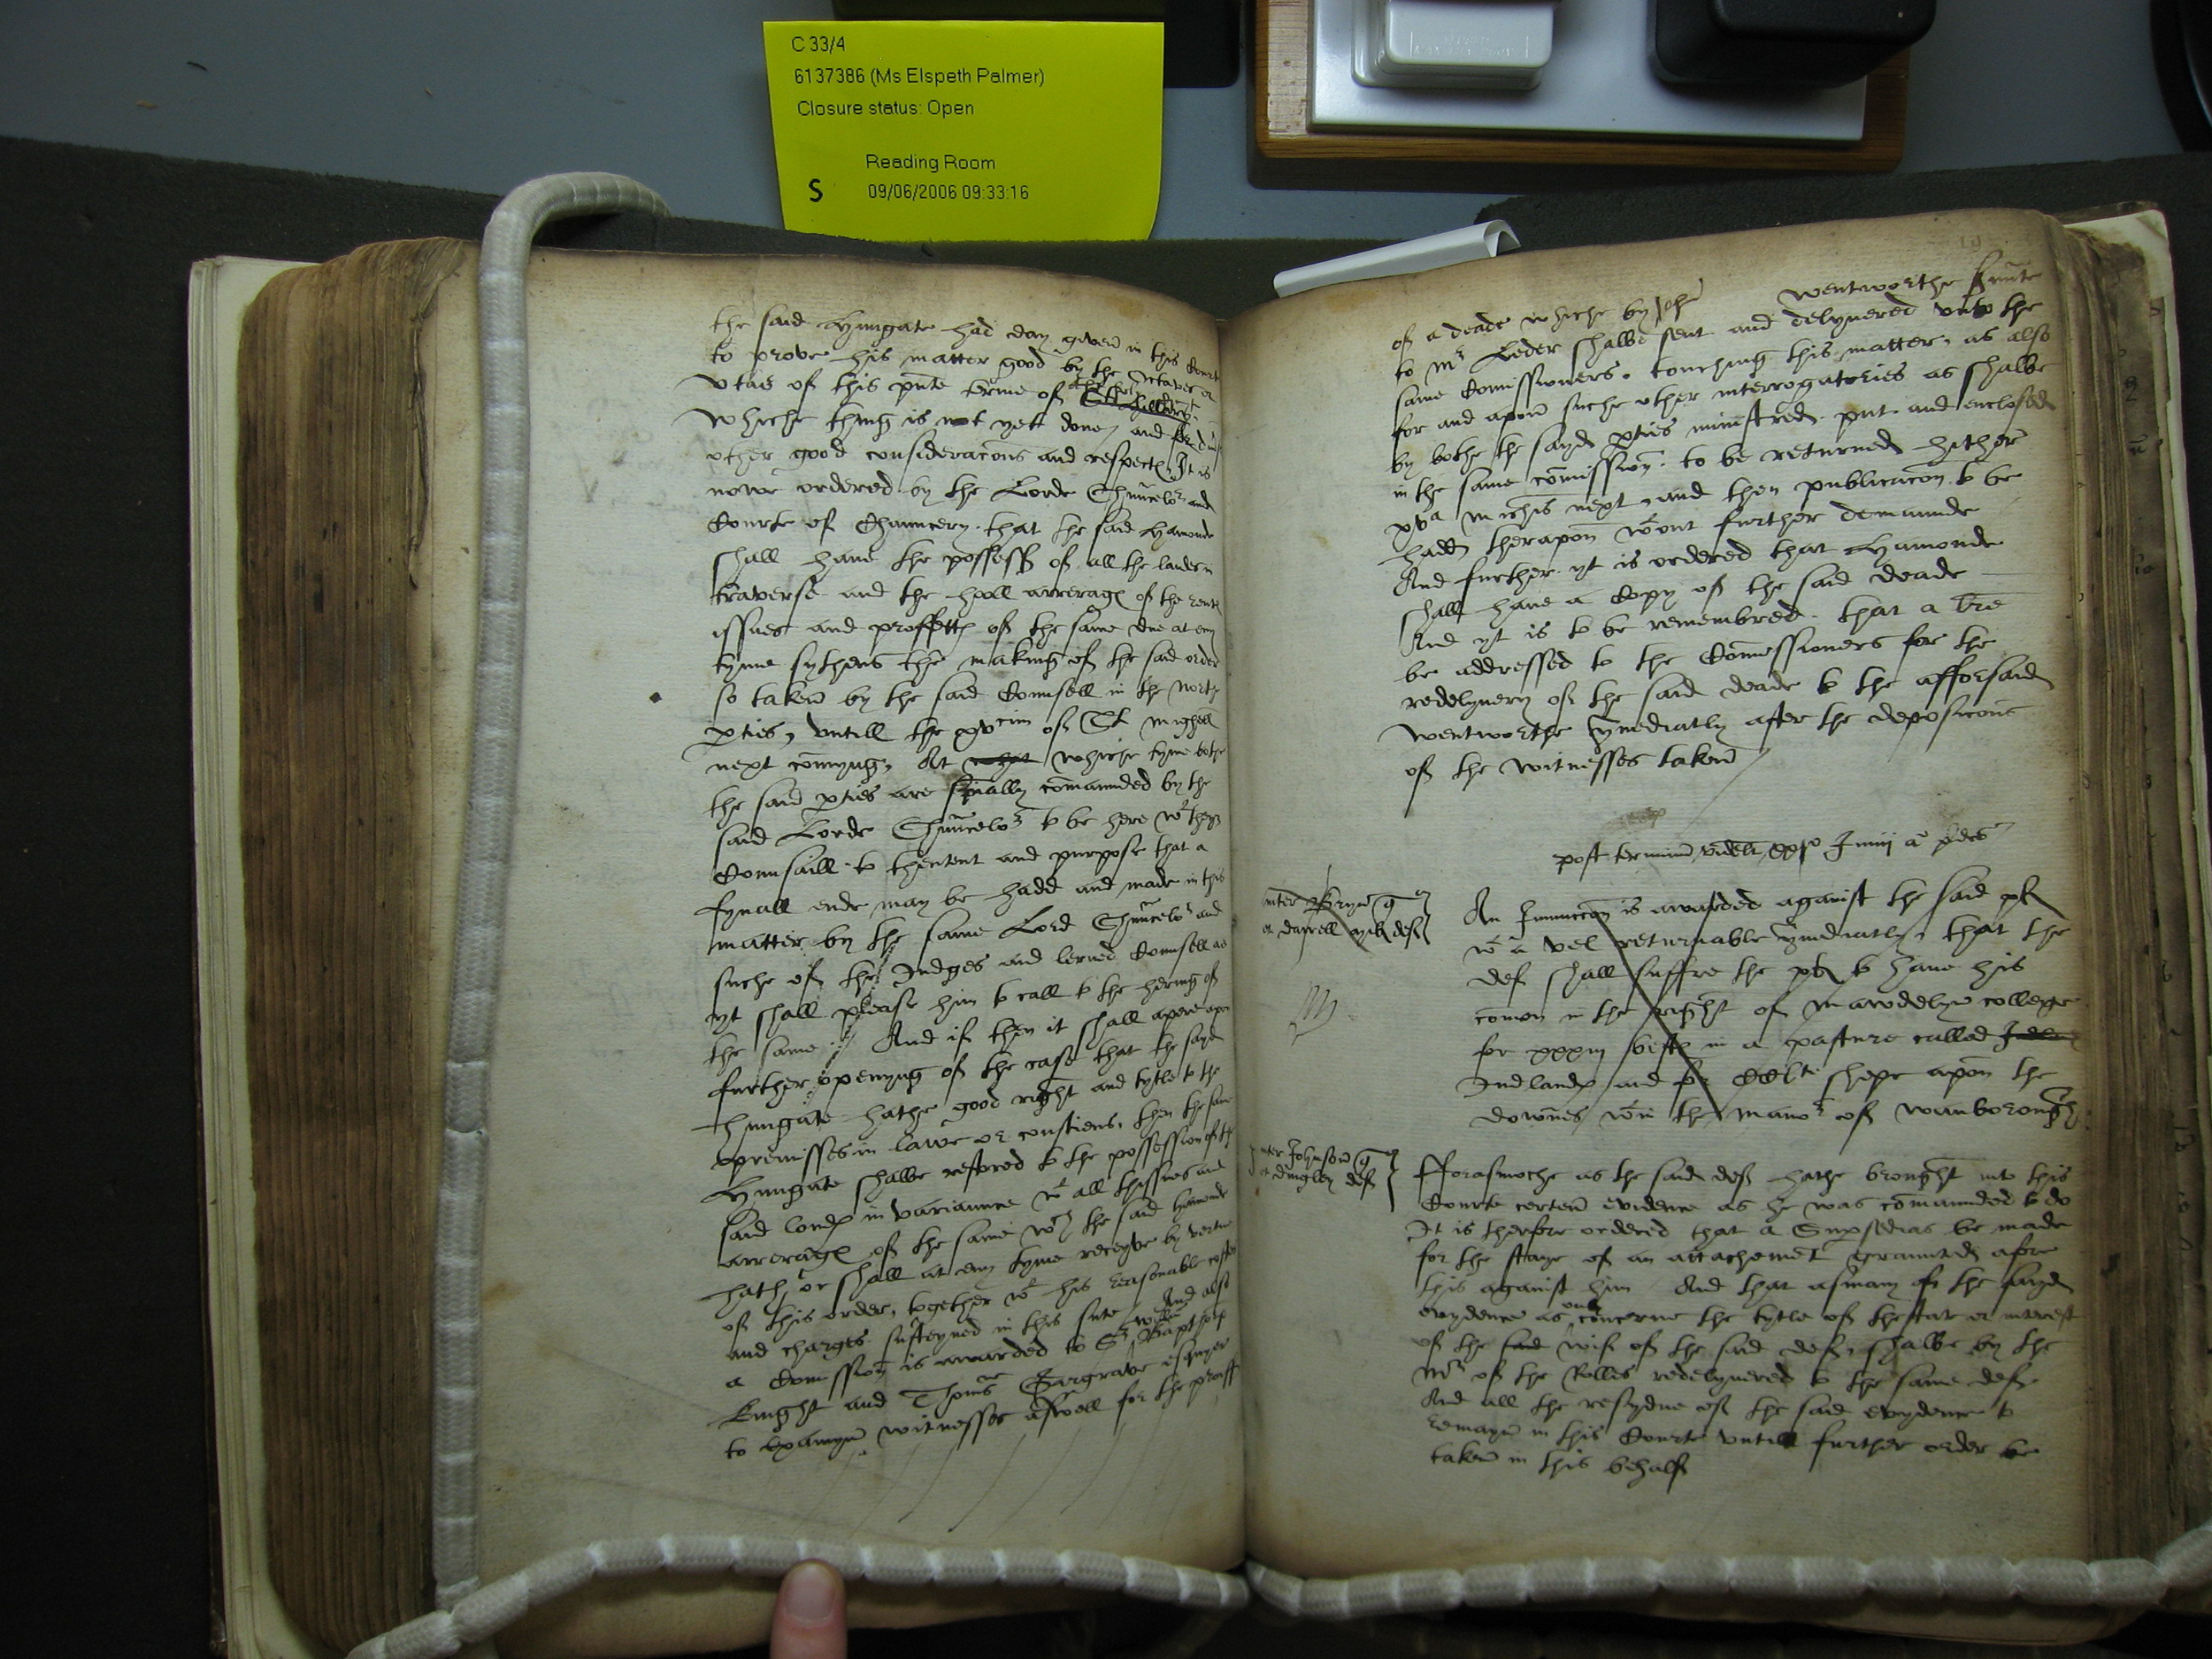 C 33/4
6137386 (Ms Elspeth Palmer)
Closure status: Open
Reading Room
S 09/06/2006 09:33:16
the said Hungate had day geven in this Court
to prove his matter good by the octaves or
vtas of this pnte terme of
whiche thing is not yett done, and for
other good consideracons and respectes, It is
nowe ordered by the Lorde Chauncelor and
Courte of Chauncery that the said Hamonde
shall have the possess of all the landes in
traverse and the hooll arrerages of the rentes
issues and proffettes of the same due at eny
tyme sythens the making of the said order
so taken by the said Counsell in the North
pties, vntill the xvcim of St Mighell
next comyng, At whiche tyme bothe
the said pties are fynally comaunded by the
said Lorde Chauncelor to be here wt theyr
Counsaill to thentent and purpose that a
fynall ende may be hadd and made in this
matter by the same Lord Chauncelor and
suche of the Judges and lerned Counsell as
yt shall please him to call to the hering of
the same And if then it shall apere apon
further openyng of the case that the sayd
Hungate hathe good right and tytle to the
premisses in lawe or consciens, then the same
Hungate shalbe restored to the possession of the
said londes in variaunce wt all thissues and
arrerages of the same wch the said Hamonde
hath or shall at eny tyme receyve by vertue
of this order, together wt his reasonable costes
and charges susteyned in this sute And also
a Comission is awarded to Sr Willm Bapthorp
knight and Thoms Gargrave esquyer
to examyn witnesses aswell for the proff
19
of a deade whiche by Joh Wentworthe
to Mr Leder shalbe sent and delyuered vnto the
same Comissioners, touching this matter, as also
for and apon suche other interrogatories as shalbe
by bothe the sayd pties ministred put and enclosed
in the same comission, to be returned hither
xva Michis next, and then publicacon to be
hadd therapon wtout further demaunde
And further yt is ordered that Hamonde
shall have a Copy of the said deade
And yt is to be remembred that a lre
be addressed to the Comissioners for the
redelyuery of the said deade to the afforsaid
Wentworthe ymediatly after the deposicons
of the witnesses taken
post terminu videlt xxjo Junij a pdco
Inter Bryn q
et Darell mil def
An Iniunccon is awarded against the said pl
wt a vel returnable ymediatly, that the
def shall suffre the pl to have his
comon in the right of Mawdelyn college
for xxxiij bestes in a pasture called
Inlandes and for shepe apon the
downes wtin the manor of Wanborough
Inter Johnson q
et Dingley def
Fforasmoche as the said def hathe brought into this
Courte certen evidence as he was comaunded to do
It is therfore ordered that a Supsedias be made
for the staye of an attachemet graunted afore
this against him And that asmany of the sayd
evydence as only concerne the tytle of thestat or interest
of the said wif of the said def, shalbe by the
Mr of the Rolles redelyuered to the same def
And all the resydue of the said evydence to
remayn in this Courte vntill further order be
taken in this behalf